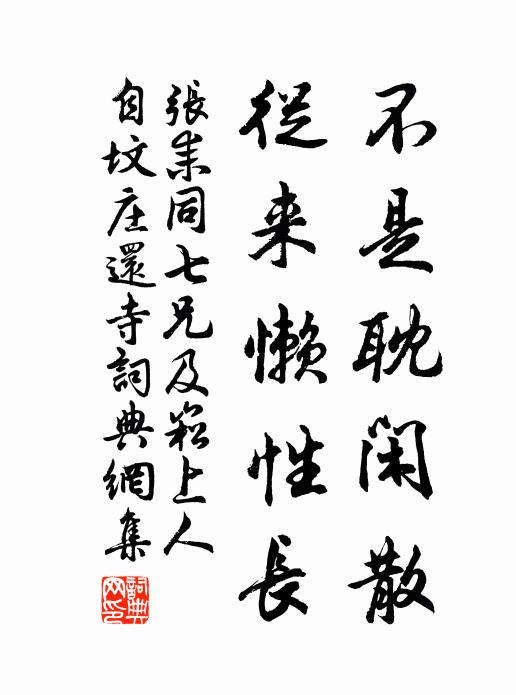 不是耽闲散
從来懒性長
張耒同七兄及崧上人
自坟庄還寺詞典網集
詞典网印